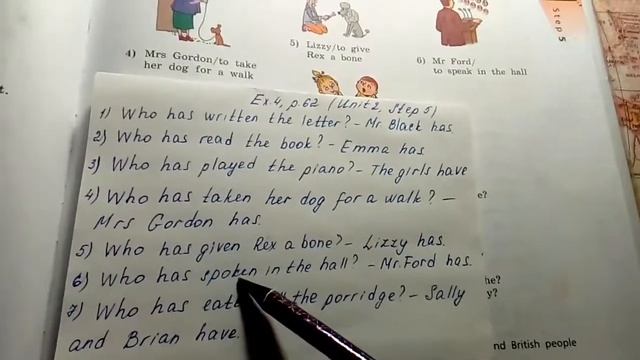 Step 5
4) Mrs Gordon/to take
her dog for a walk
5) Lizzy/to give
Rex a bone
6) Mr Ford/
to speak in the hall
t.
Ex 4, p. 62 (Unit 2, Step 5)
1) Who has written the letter? - Mr. Black has
2) Who has read the book? - Emma has
3) Who has played the piano? - The girls have
4) Who has taken her dog for a walk? -
Mrs Gordon has.
5) Who has given Rex a bone? - Lizzy has.
6) Who has spoken in the hall? - Mr. Ford has.
7) Who has the porridge? - Sally
and Brian have.
e?
he?
y?
nd British people